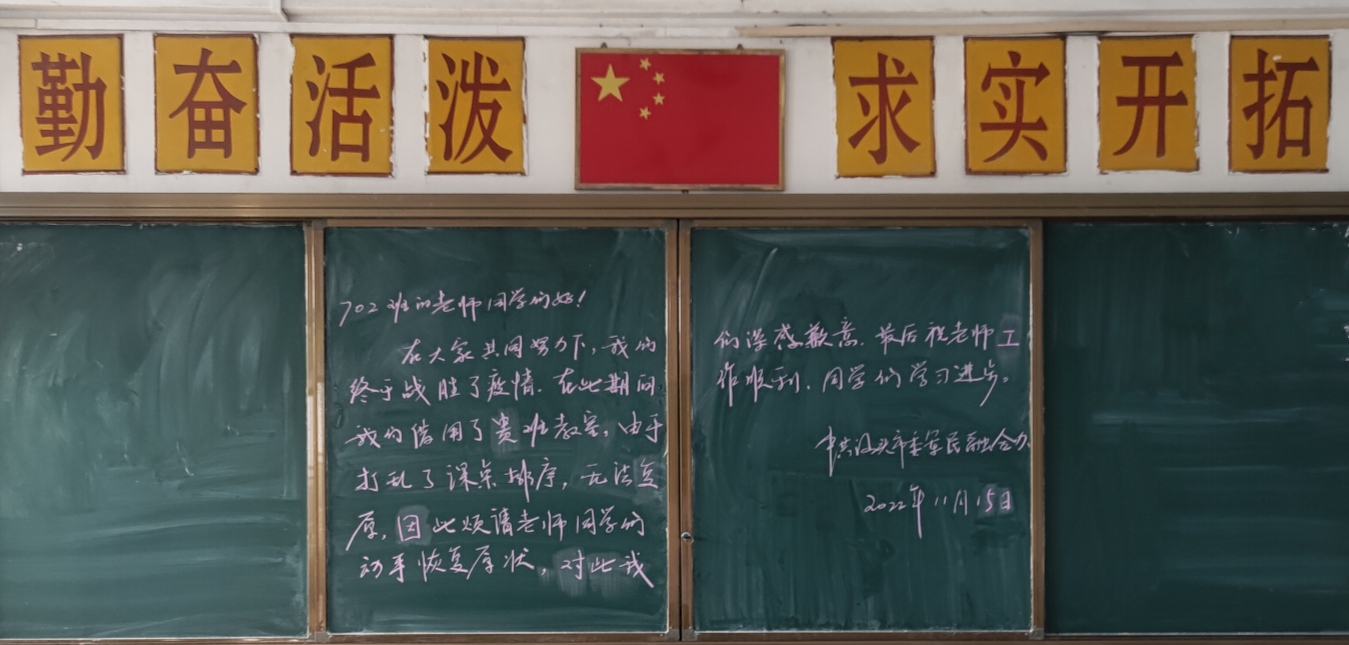 勤奋活泼 求实开拓
702班的老师同学们好！
在大家共同努力下，我们
终于战胜了疫情．在此期间
我们借用了贵班教室，由于
打乱了课桌排序，无法复
原，因此烦请老师同学们
动手恢复原状，对此我
们深感歉意．最后祝老师工
作顺利．同学们学习进步。
中共汕头市委军民融合办
2022年11月15日